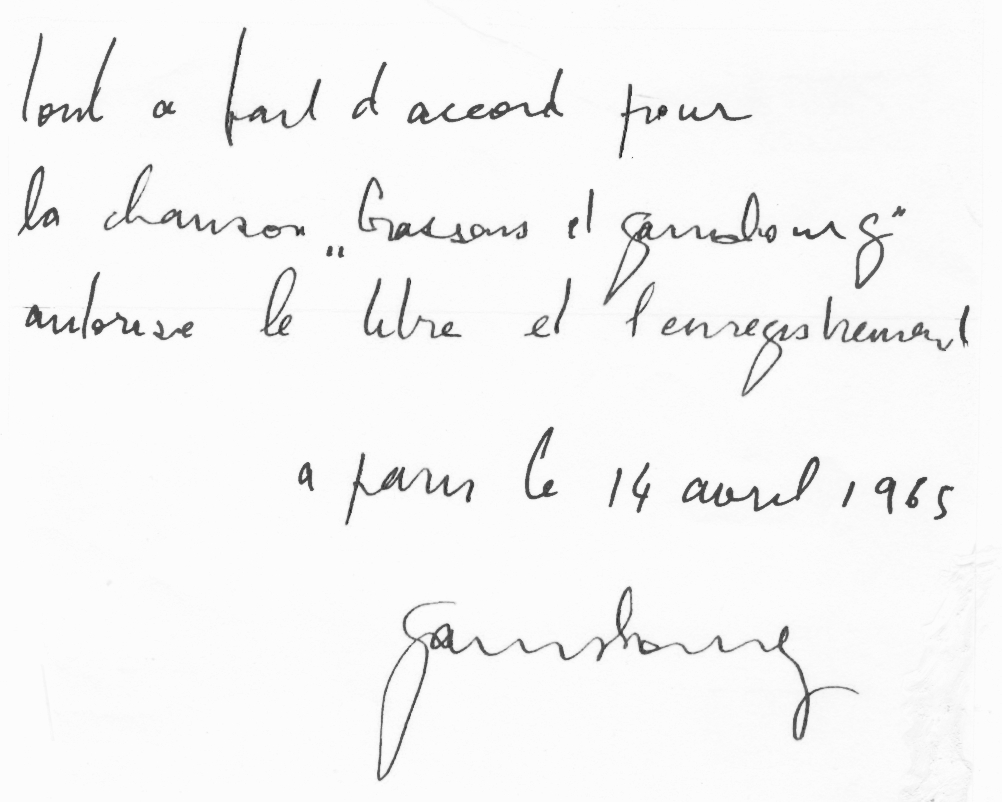 tout a fait d accord pour
la chanson „Brassens et gainsbourg"
autorise le titre et l enregistrement
a paris le 14 avril 1965
gainsbourg